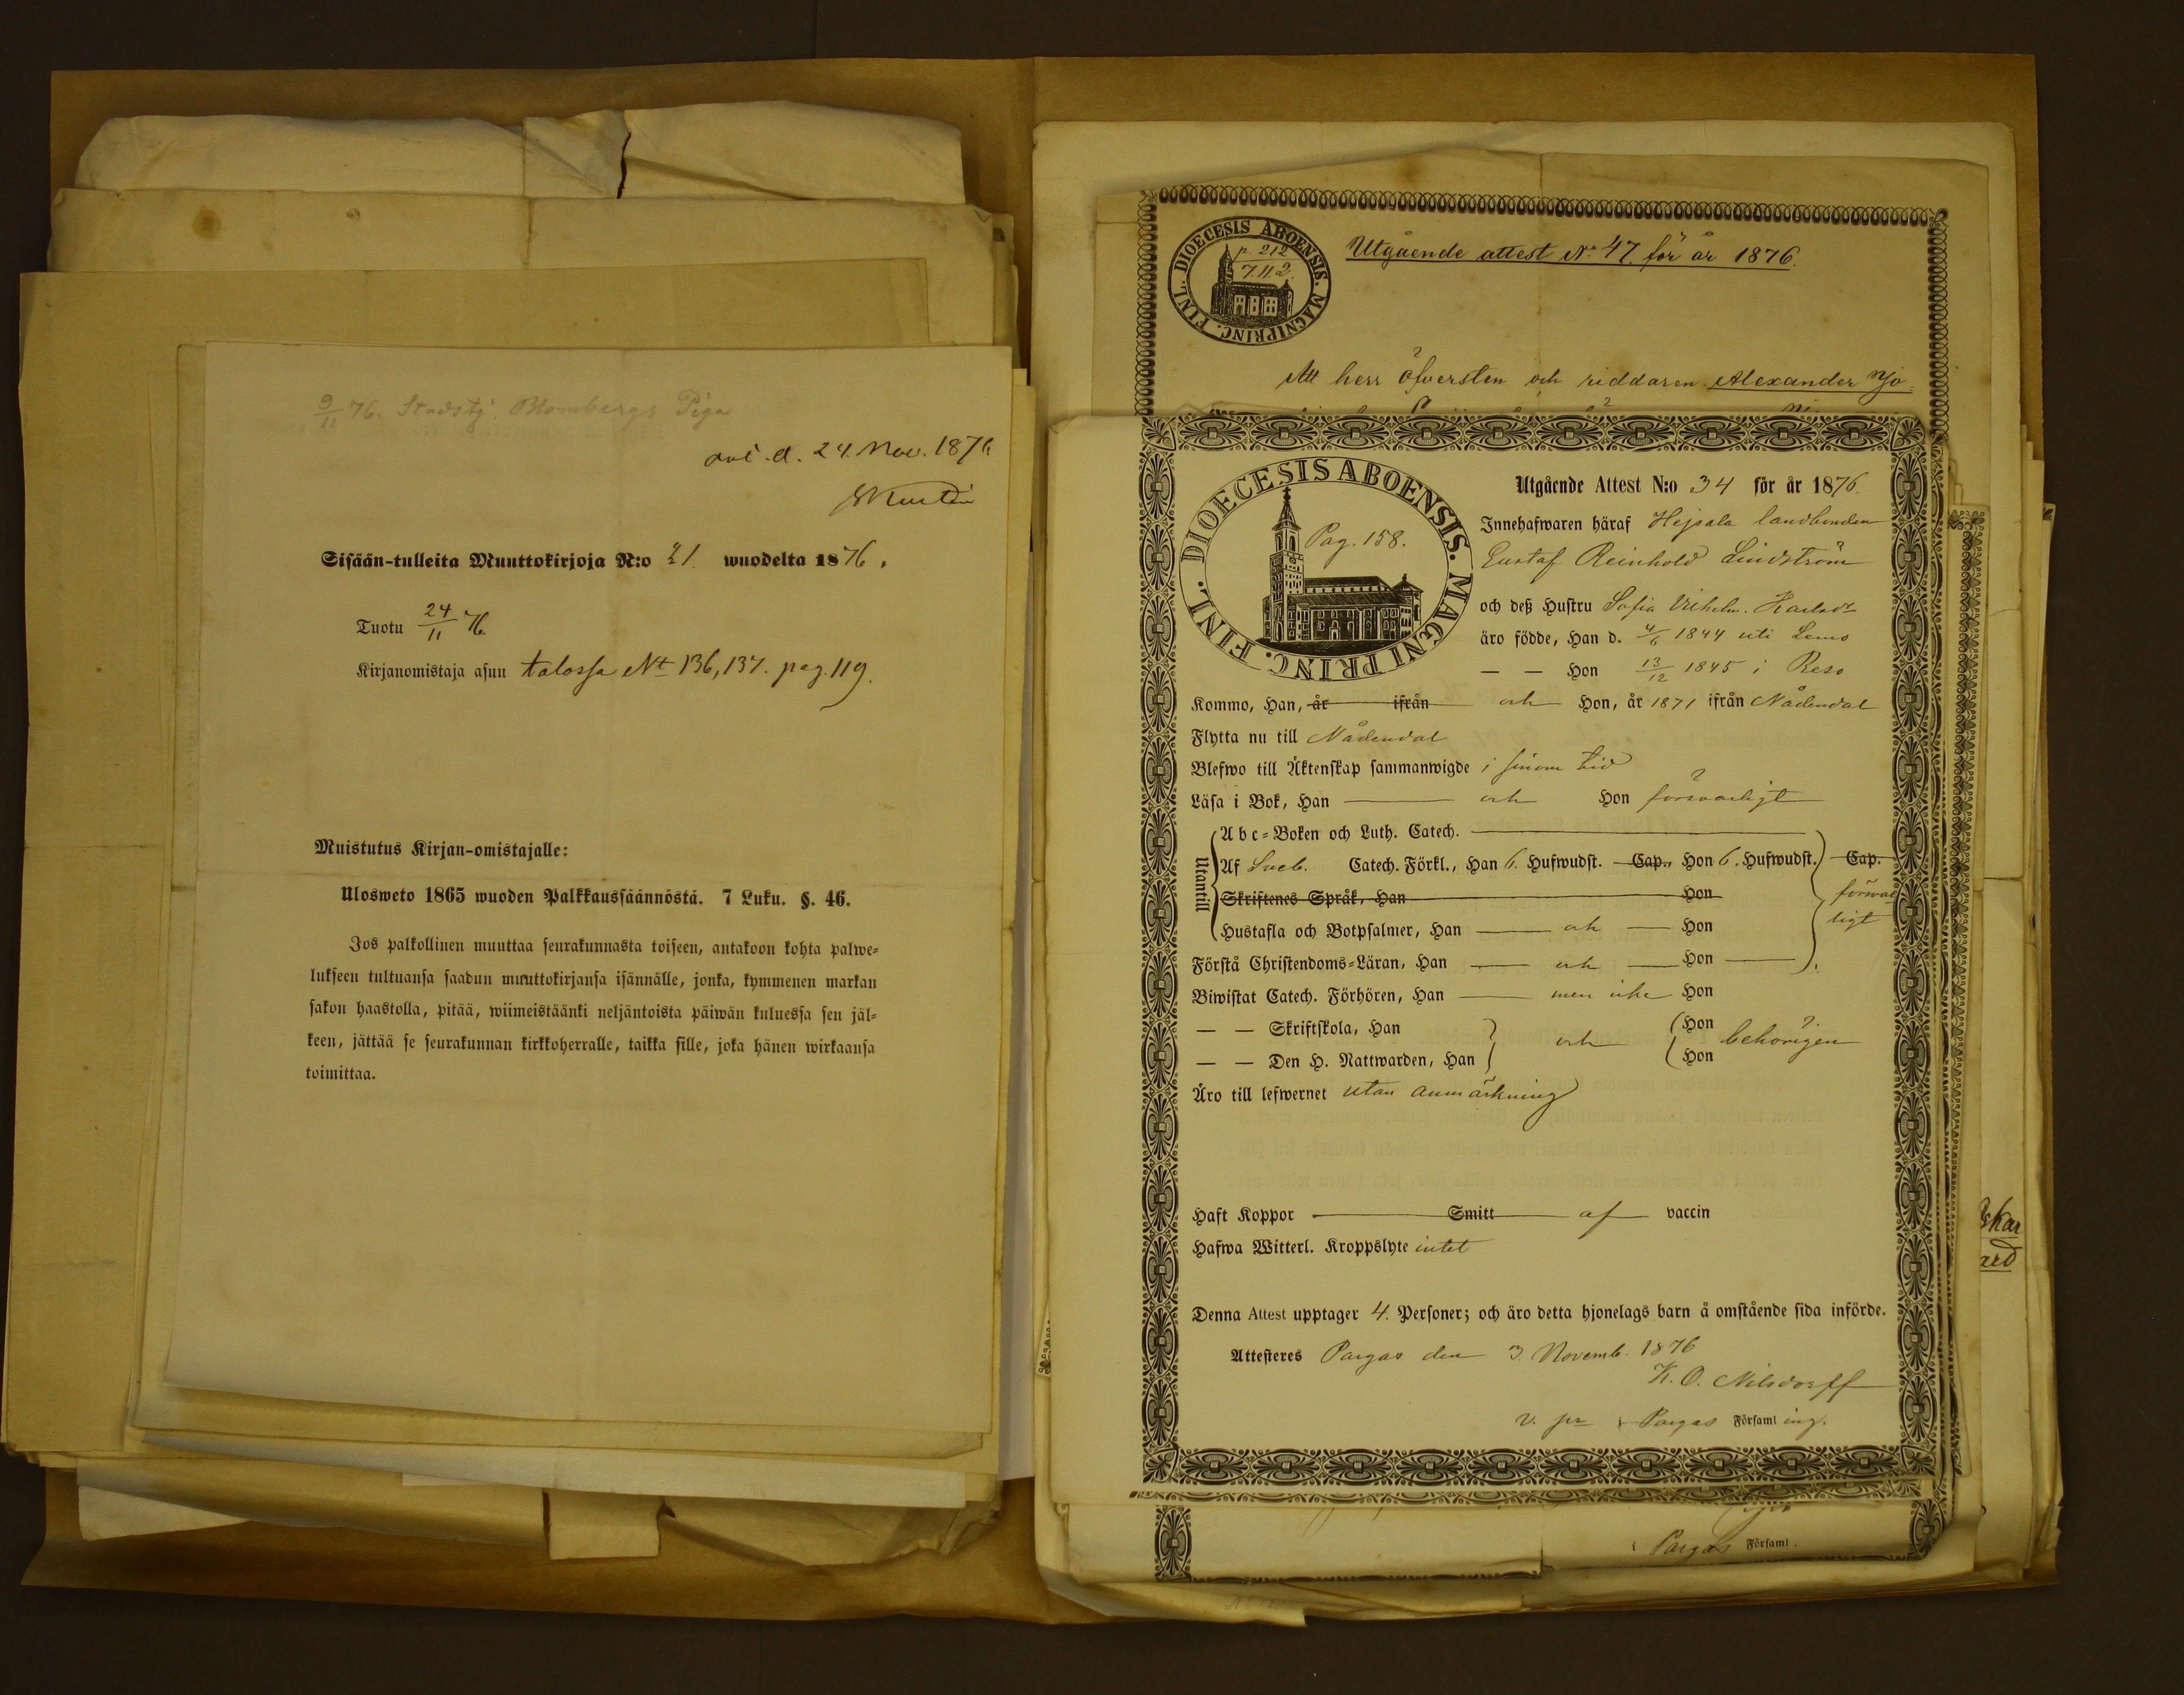 9/11 76. Stadstj. Blombergs Piga
anl. d. 24. Nov. 1876
Sisään-tulleita Muuttokirjoja N:o 21. wuodelta 1876.
Tuotu 24/11 76.
Kirjanomistaja asuu talossa No 136, 137. pag. 119.
Muistutus Kirjan-omistajalle:
Ulosweto 1865 wuoden Palkkaussäännöstä. 7 Luku. §. 46.
Jos palkollinen muuttaa seurakunnasta toiseen, antakoon kohta palwe=
lukseen tultuansa saadun muuttokirjansa isännälle, jonka, kymmenen markan
sakon haastolla, pitää, wiimeistäänki neljäntoista päiwän kuluessa sen jäl=
keen, jättää se seurakunnan kirkkoherralle, taikka sille, joka hänen wirkaansa
toimittaa.
DIOECESIS ABOENSIS. MAGNIPRINC. FINL.
p. 212
7.11.2.
Utgående attest No 47. för år 1876.
Att herr öfversten och riddaren Alexander
DIOECESIS ABOENSIS. MAGNI PRINC. FINL.
Pag. 158.
Utgående Attest N:o 34 för år 1876.
Innehafwaren häraf Hejsala landbonden
Gustaf Reinhold Lindström
och deß Hustru Sofia Vilhelm. Karlsdr
äro födde, Han d. 4/6 1844 uti Lemo
— — Hon 13/12 1845 i Reso
Kommo, Han, år ifrån och Hon, år 1871 ifrån Nådendal
Flytta nu till Nådendal
Blefwo till Äktenskap sammanwigde i sinom tid
Läsa i Bok, Han — och Hon försvarligt
Utantill
Abc=Boken och Luth. Catech.
Af Sveb. Catech. Förkl., Han 6. Hufwudst. Cap., Hon 6. Hufwudst. Cap.
Skriftenes Språk, Han Hon
försvar
ligt
Hustafla och Botpsalmer, Han — och — Hon
Förstå Christendoms=Läran, Han — och — Hon —
Biwistat Catech. Förhören, Han — men icke Hon
— — Skriftskola, Han och Hon behörigen
— — Den H. Nattwarden, Han Hon
Äro till lefwernet utan anmärkning
Haft Koppor — Smitt af vaccin
Hafwa Witterl. Kroppslyte intet
Denna Attest upptager 4. Personer; och äro detta hjonelags barn å omstående sida införde.
Attesteres Pargas den 3. Novemb. 1876
K. O. Nilsdorff
v. pr i Pargas Församling.
i Pargas Församl.